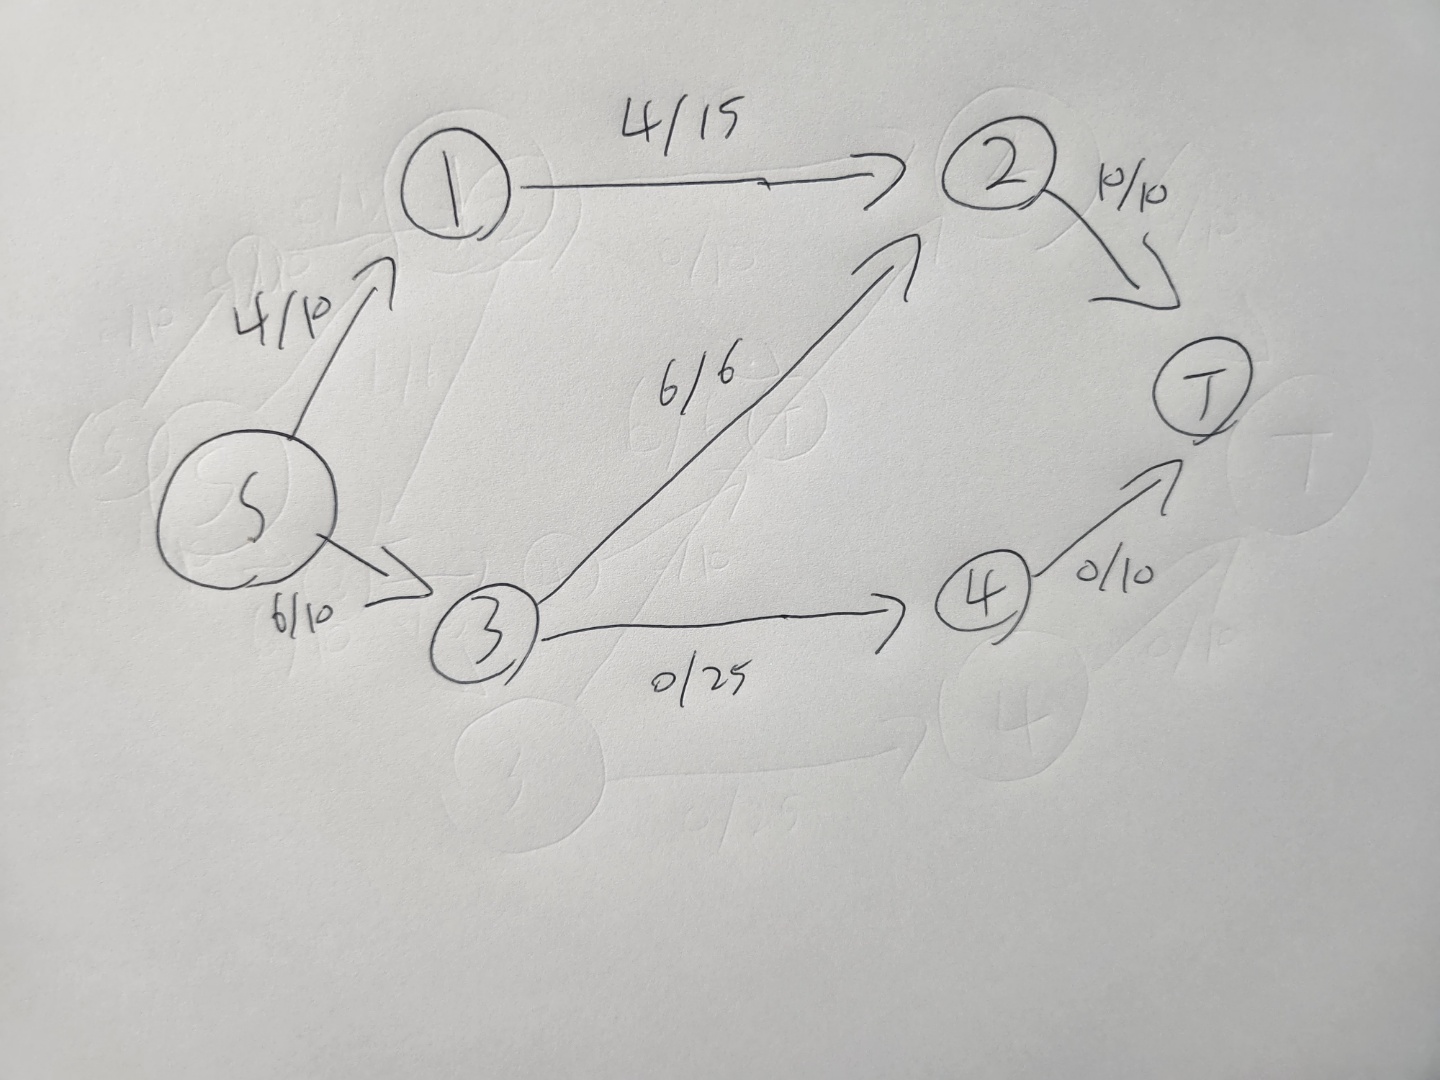 4/15
1
2
10/10
4/10
6/6
T
S
6/10
3
4
0/10
0/25